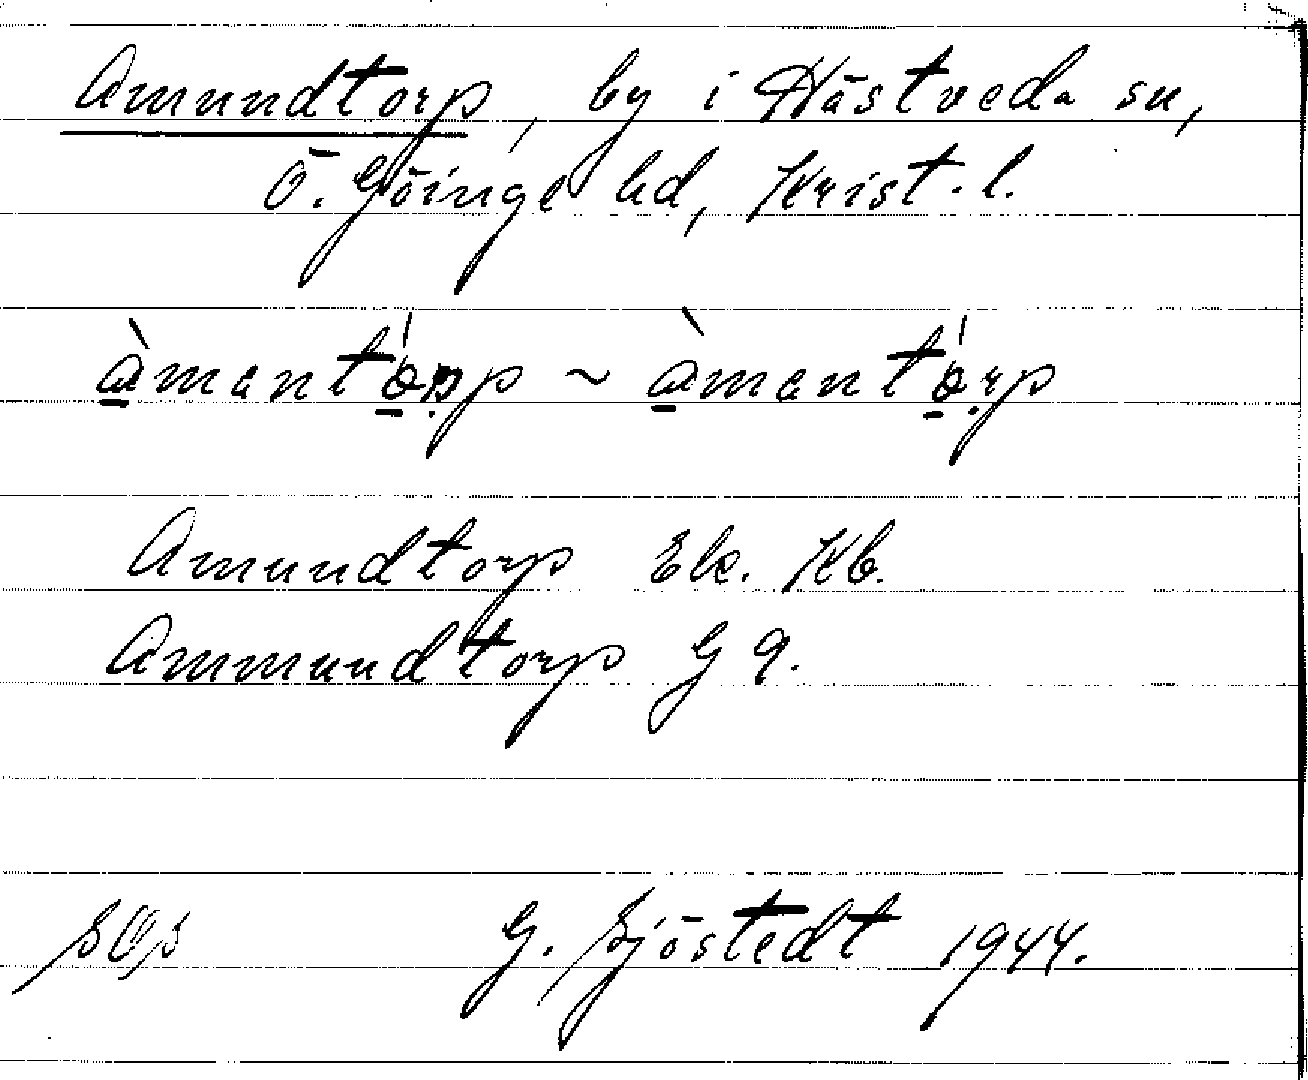 Amundtorp, by i Hästveda sn,
Ö. Göinge hd, Krist. l.
àmantórp ~ àmantórp
Amundtorp Ek. Kb.
Ammundtorp G 9.
G. Sjöstedt 1944.